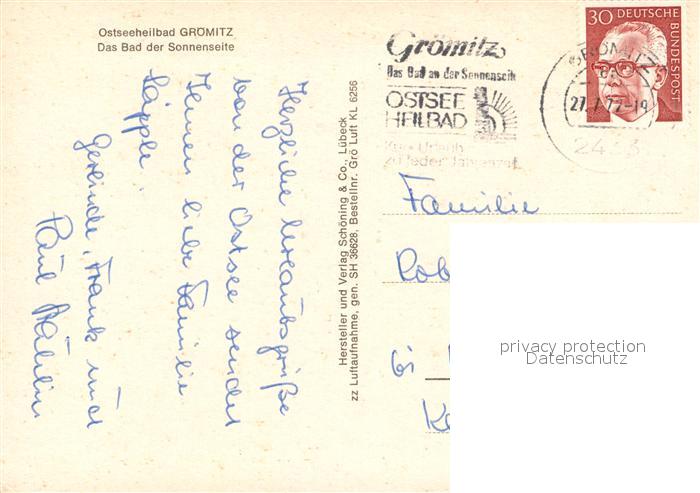 Ostseeheilbad GRÖMITZ
Das Bad der Sonnenseite
Herzliche Urlaubsgrüße
von der Ostsee sendet
Ihnen liebe Familie
Läpple.
Gerlinde, Frank und
Paul
Hersteller und Verlag Schöning & Co., Lübeck
zz Luftaufnahme, gen. SH 36628, Bestellnr. Grö Luft KL 6256
Grömitz
Das Bad an der Sonnenseite
OSTSEE
HEILBAD
Kur - Urlaub
zu jeder Jahreszeit
30 DEUTSCHE
BUNDESPOST
GRÖMITZ
27.7.72-19
Familie
Rob
privacy protection
Datenschutz